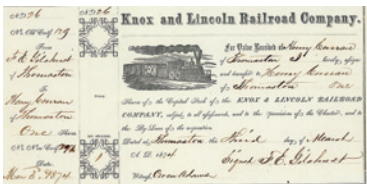 No 26
No Old Certf. 129
From
F. E. Gilchrest
of Thomaston
To
Henry Curran
of Thomaston
One Share
No New Certf.
Date
1874
No 26
Knox and Lincoln Railroad Company.
For Value Received the Henry Curran
of Thomaston hereby assigns
and transfers to Henry Curran
of Thomaston One
Share of the Capital Stock of the KNOX & LINCOLN RAILROAD
COMPANY, subject to all assessments, and to the provisions of the Charter, and to
the By-Laws of the corporation.
Dated at Thomaston this Third day of March
A. D. 1874
Signed F. E. Gilchrest
Witness,
1